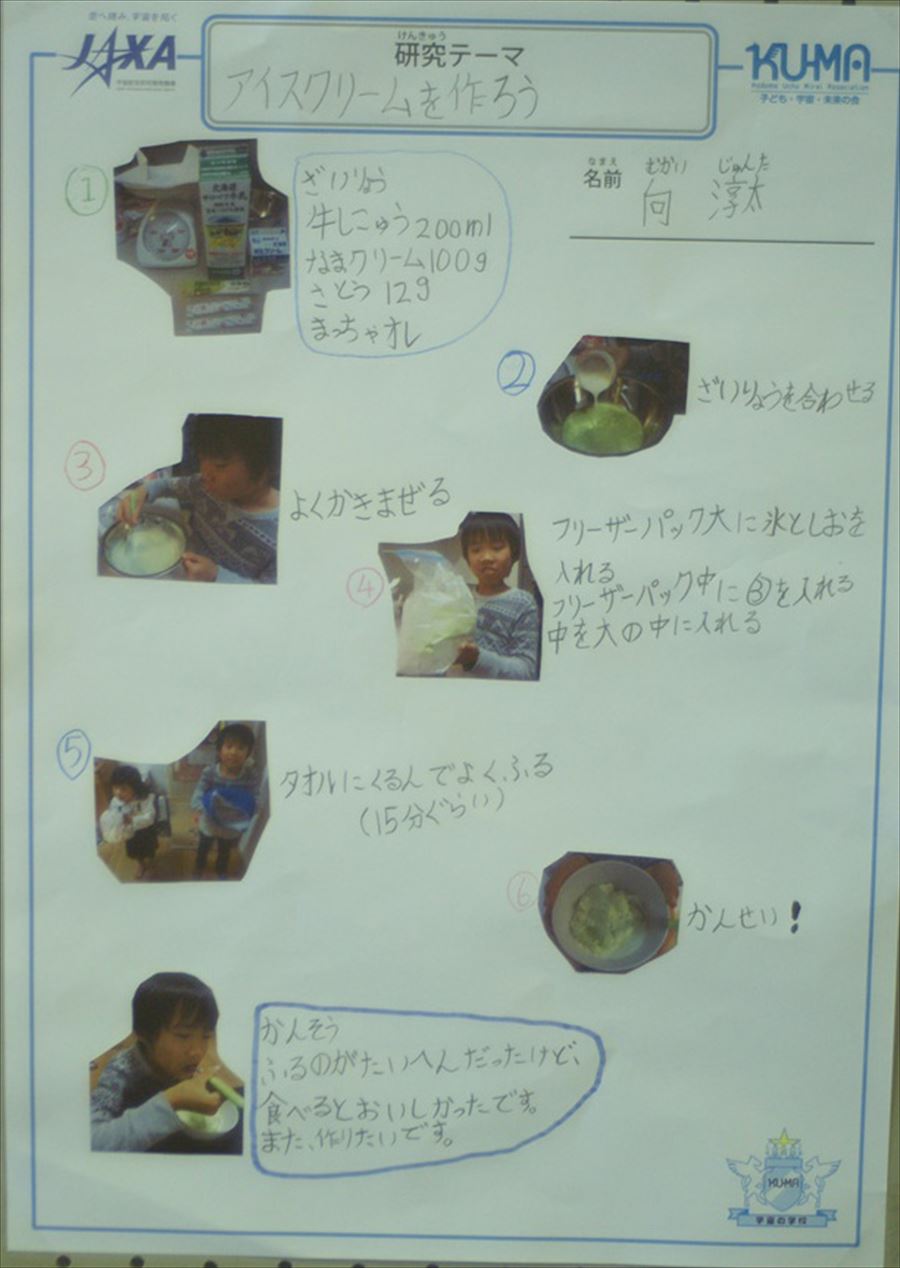 空へ挑み、宇宙を拓く
JAXA
けんきゅう
研究テーマ
アイスクリームを作ろう
KU-MA
Kodomo Uchu Mirai Association
子ども・宇宙・未来の会
なまえ むかい じゅんた
名前 向 淳太
①
北海道
ざいりょう
牛にゅう200ml
なまクリーム100g
さとう 12g
まっちゃオレ
②
ざいりょうを合わせる
③
よくかきまぜる
④
フリーザーパック大に氷としおを
入れる
フリーザーパック中に③を入れる
中を大の中に入れる
⑤
タオルにくるんでよくふる
(15分ぐらい)
⑥
かんせい!
かんそう
ふるのがたいへんだったけど、
食べるとおいしかったです。
また、作りたいです。
KU-MA
宇宙の学校